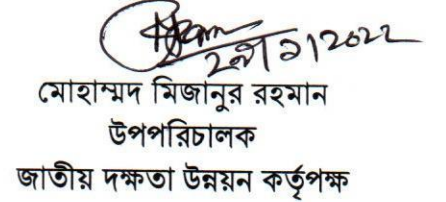 ২৭/১/২০২২
মোহাম্মদ মিজানুর রহমান
উপপরিচালক
জাতীয় দক্ষতা উন্নয়ন কর্তৃপক্ষ